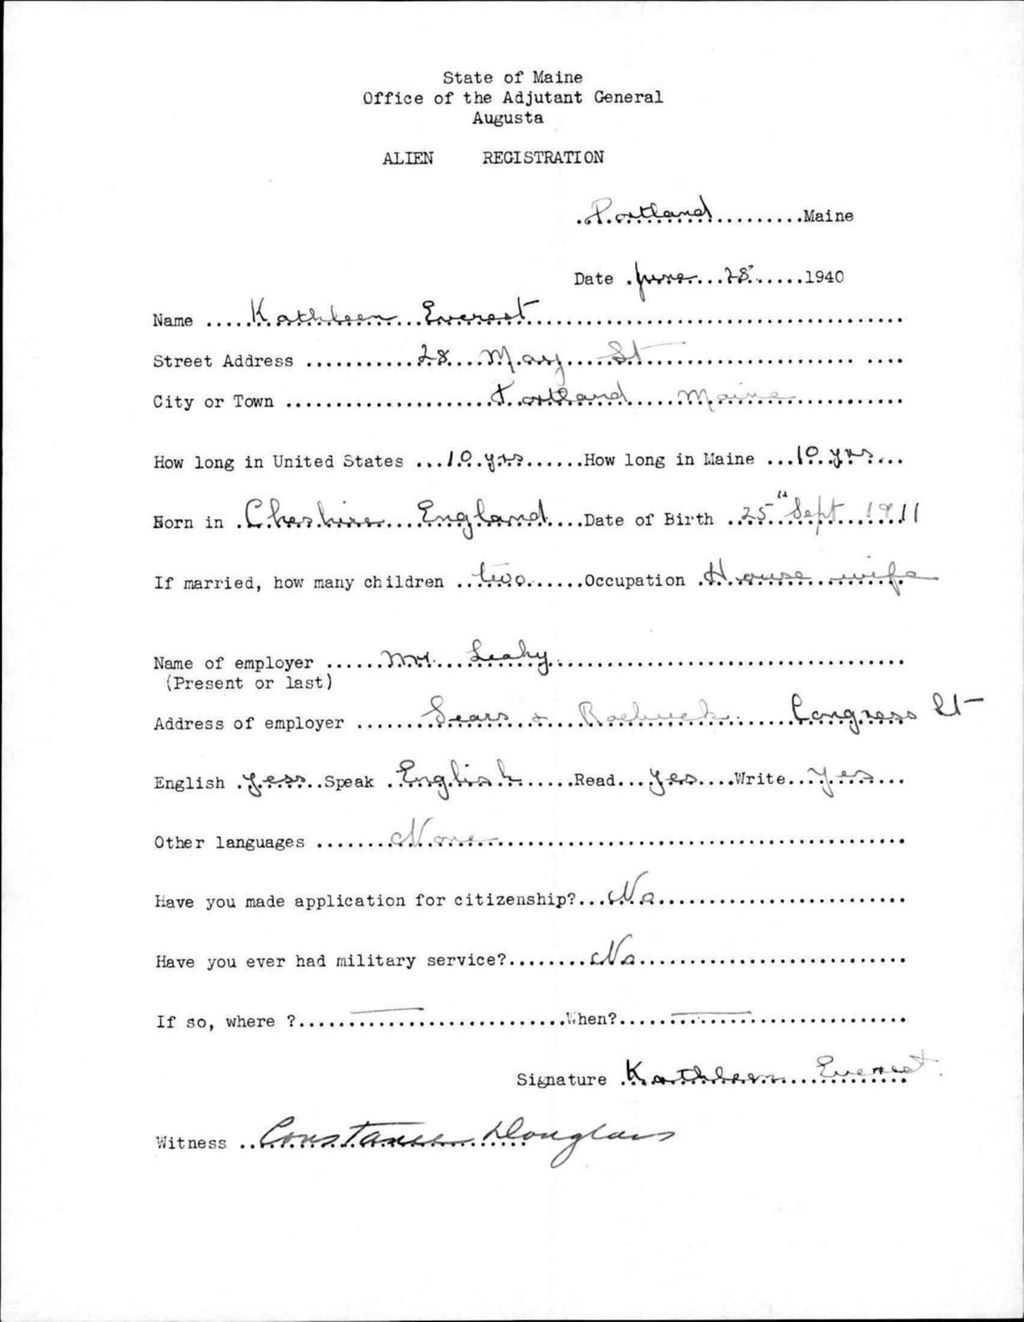 State of Maine
Office of the Adjutant General
Augusta
ALIEN REGISTRATION
Portland Maine
Date June 28 1940
Name Kathleen Everest
Street Address 28 May St
City or Town Portland Maine
How long in United States 10 yrs How long in Maine 10 yrs
Born in Cheshire England Date of Birth 25th Sept 1911
If married, how many children two Occupation House wife
Name of employer Mr. Leahy
(Present or last)
Address of employer Sears & Roebuck Congress St
English yess Speak English Read yes Write yes
Other languages None
Have you made application for citizenship? No
Have you ever had military service? No
If so, where ? — When? —
Signature Kathleen Everest
Witness Constance Douglass